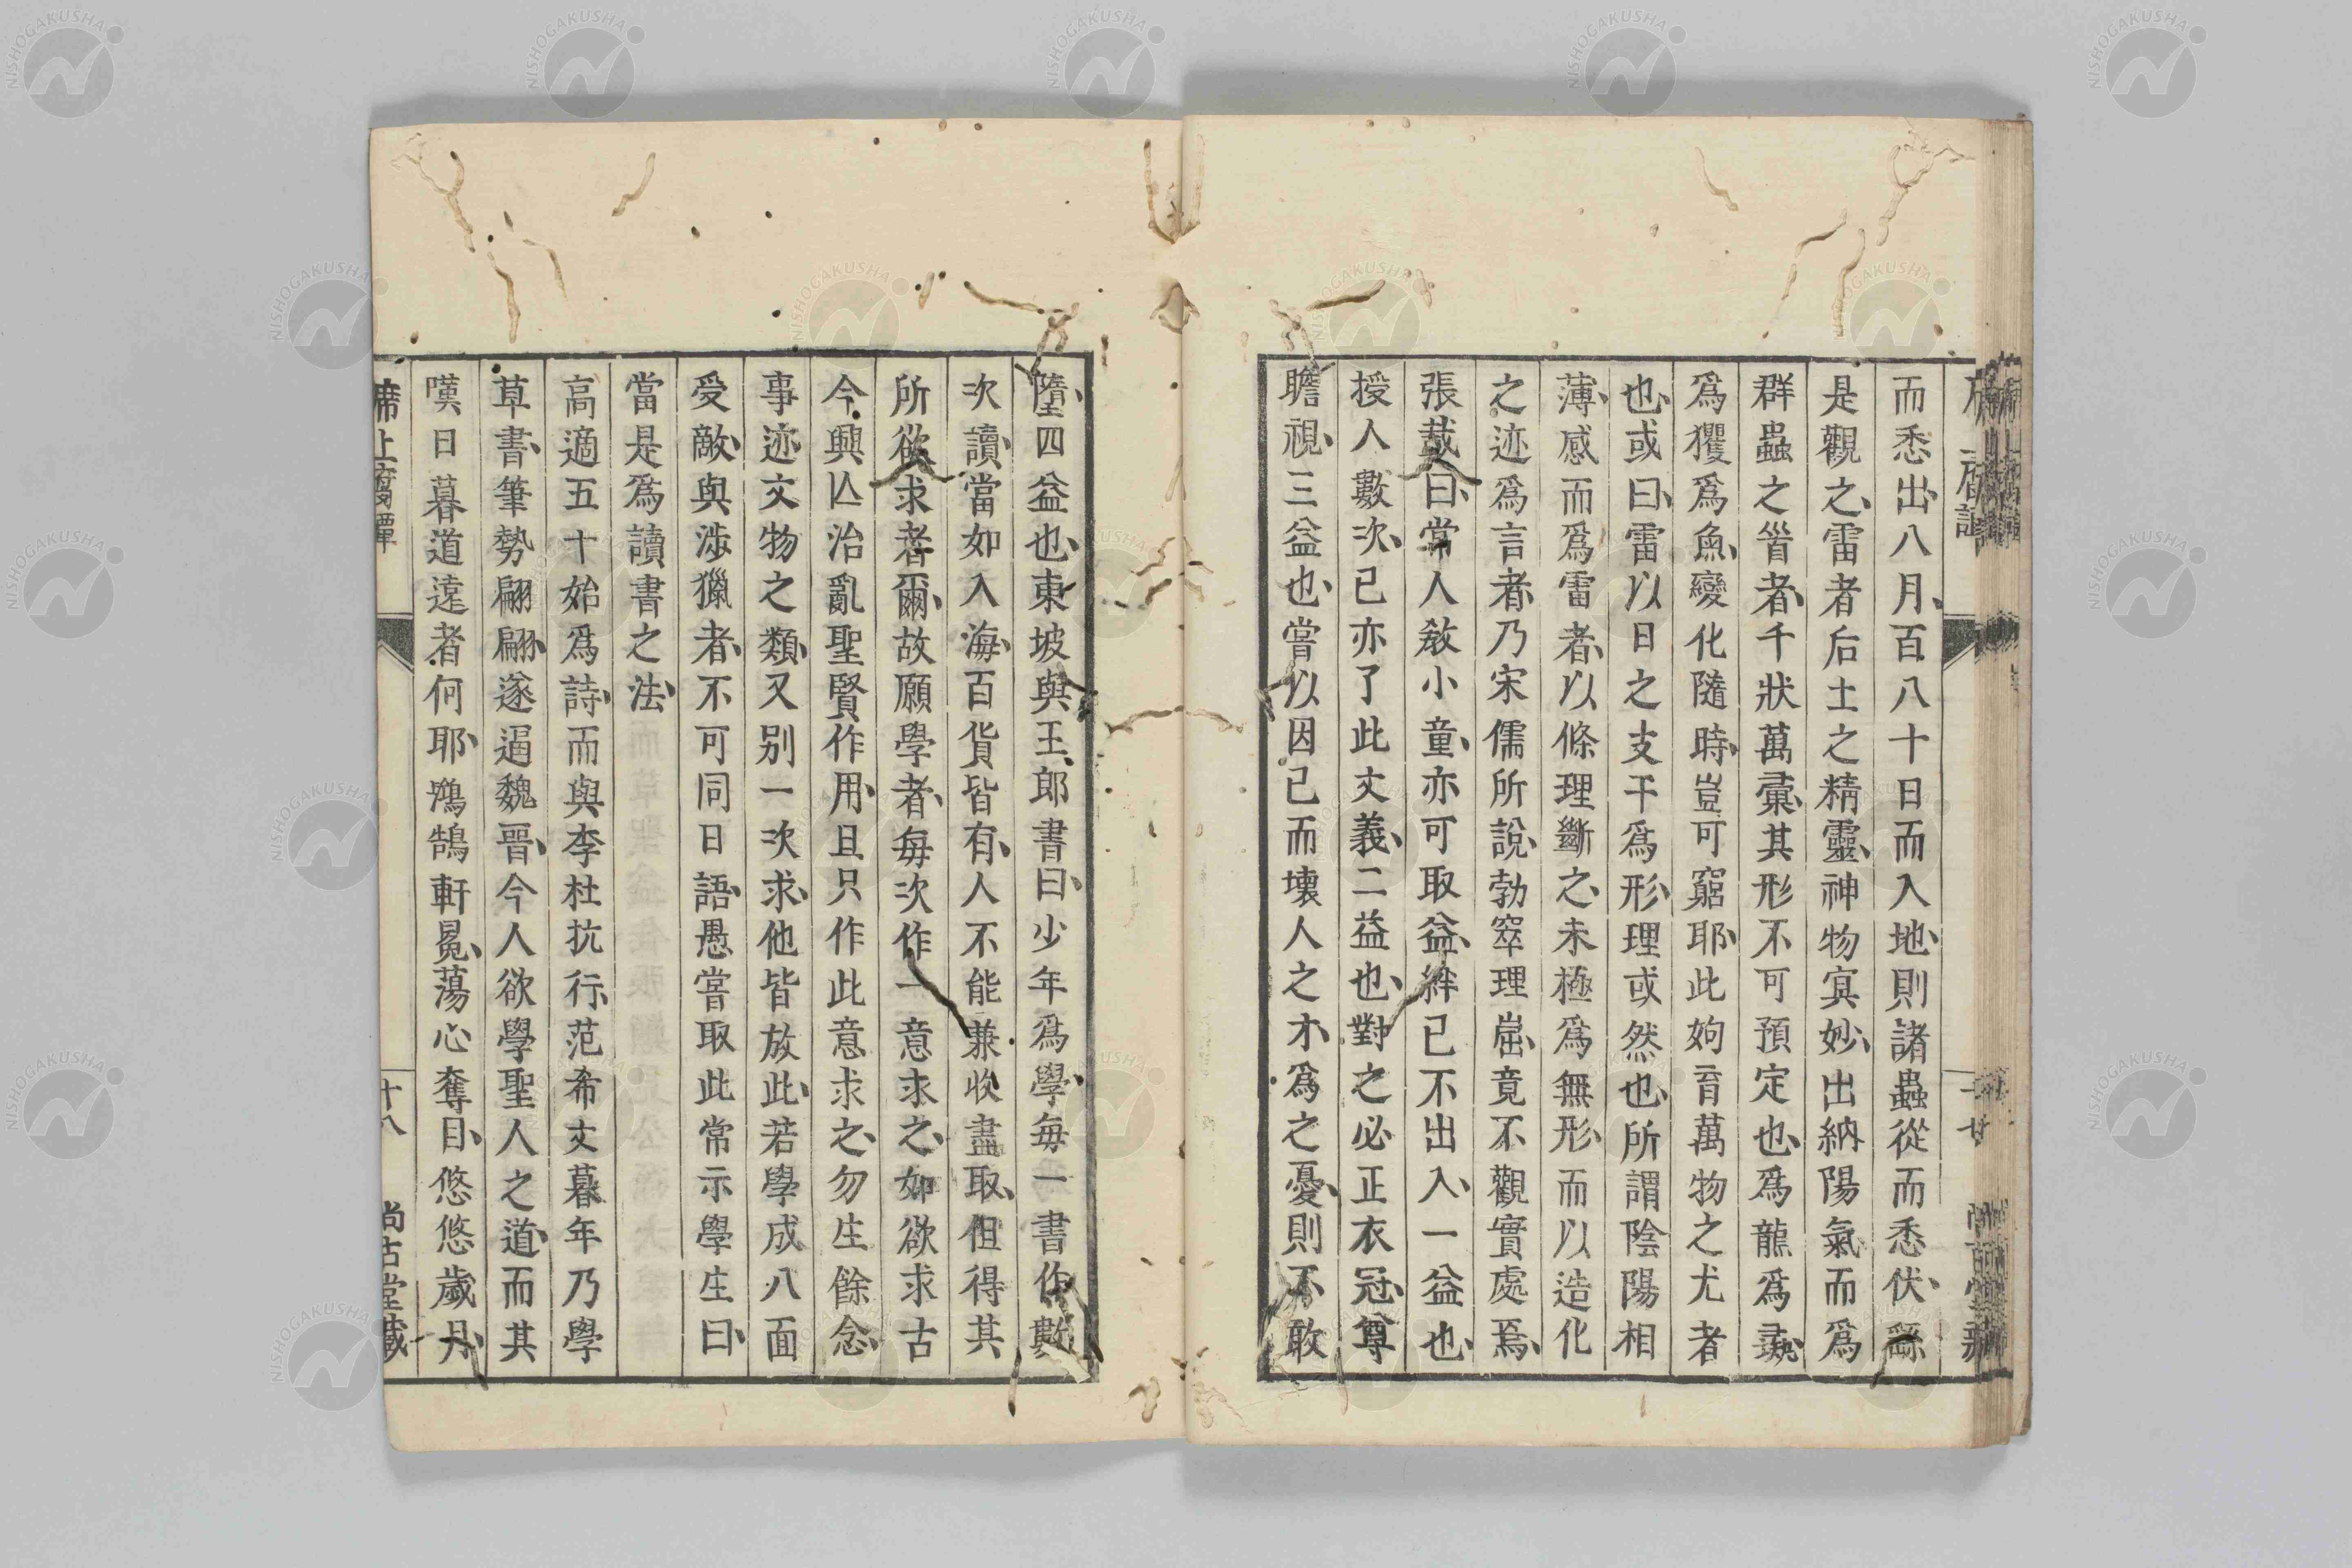 而悉出、八月、百八十日而入地、則諸蟲從而悉伏、繇
是觀之、雷者后土之精靈、神物㝠妙、出納陽氣而爲
群蟲之首者、千狀萬彙、其形不可預定也、爲龍爲彘、
爲玃爲魚、變化隨時、豈可窮耶、此姁育萬物之尤者
也、或曰、雷以日之支干爲形、理或然也、所謂陰陽相
薄、感而爲雷者、以條理斷之、未極爲無形、而以造化
之迹爲言者、乃宋儒所說、勃窣理窟、竟不觀實處焉、
張載曰、常人敎小童、亦可取益、絆己不出入、一益也、
授人數次、己亦了此文義、二益也、對之必正衣冠、尊
瞻視、三益也、嘗以因己而壊人之才、爲之憂、則不敢
墮、四益也、東坡與王郎書曰、少年爲學、每一書作數
次讀、當如入海、百貨皆有、人不能兼收盡取、但得其
所欲求者爾、故願學者、每次作一意求之、如欲求古
今興亾治亂聖賢作用、且只作此意求之、勿生餘念、
事迹文物之類、又別一次求、他皆放此、若學成八面
受敵、與涉獵者、不可同日語、愚嘗取此常示學生曰、
當是爲讀書之法、
高適五十始爲詩、而與李杜抗行、范希文暮年乃學
草書、筆勢翩翩、遂逼魏晉、今人欲學聖人之道、而其
嘆日暮道遠者何耶、鴻鵠軒冕、蕩心奪目、悠悠歲月、
席上腐譚
十八
尚古堂藏